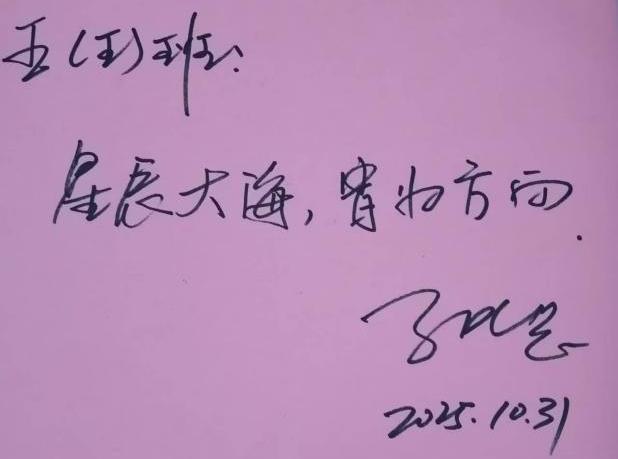 五(五)班:
星辰大海,皆为方向.
2025.10.31